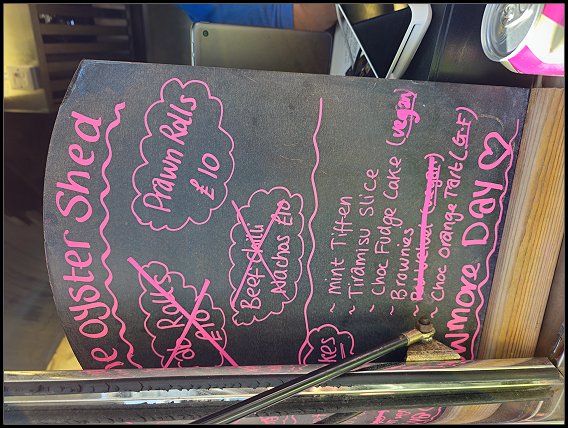 he Oyster Shed
ab Rolls
£10
Prawn Rolls
£10
Beef Chilli
Nachos £10
kes
~ Mint Tiffen
~ Tiramisu Slice
~ Choc Fudge Cake (vegan)
~ Brownies
~ Red velvet (vegan)
~ Choc Orange Tart (G.F)
wmore Day ♡